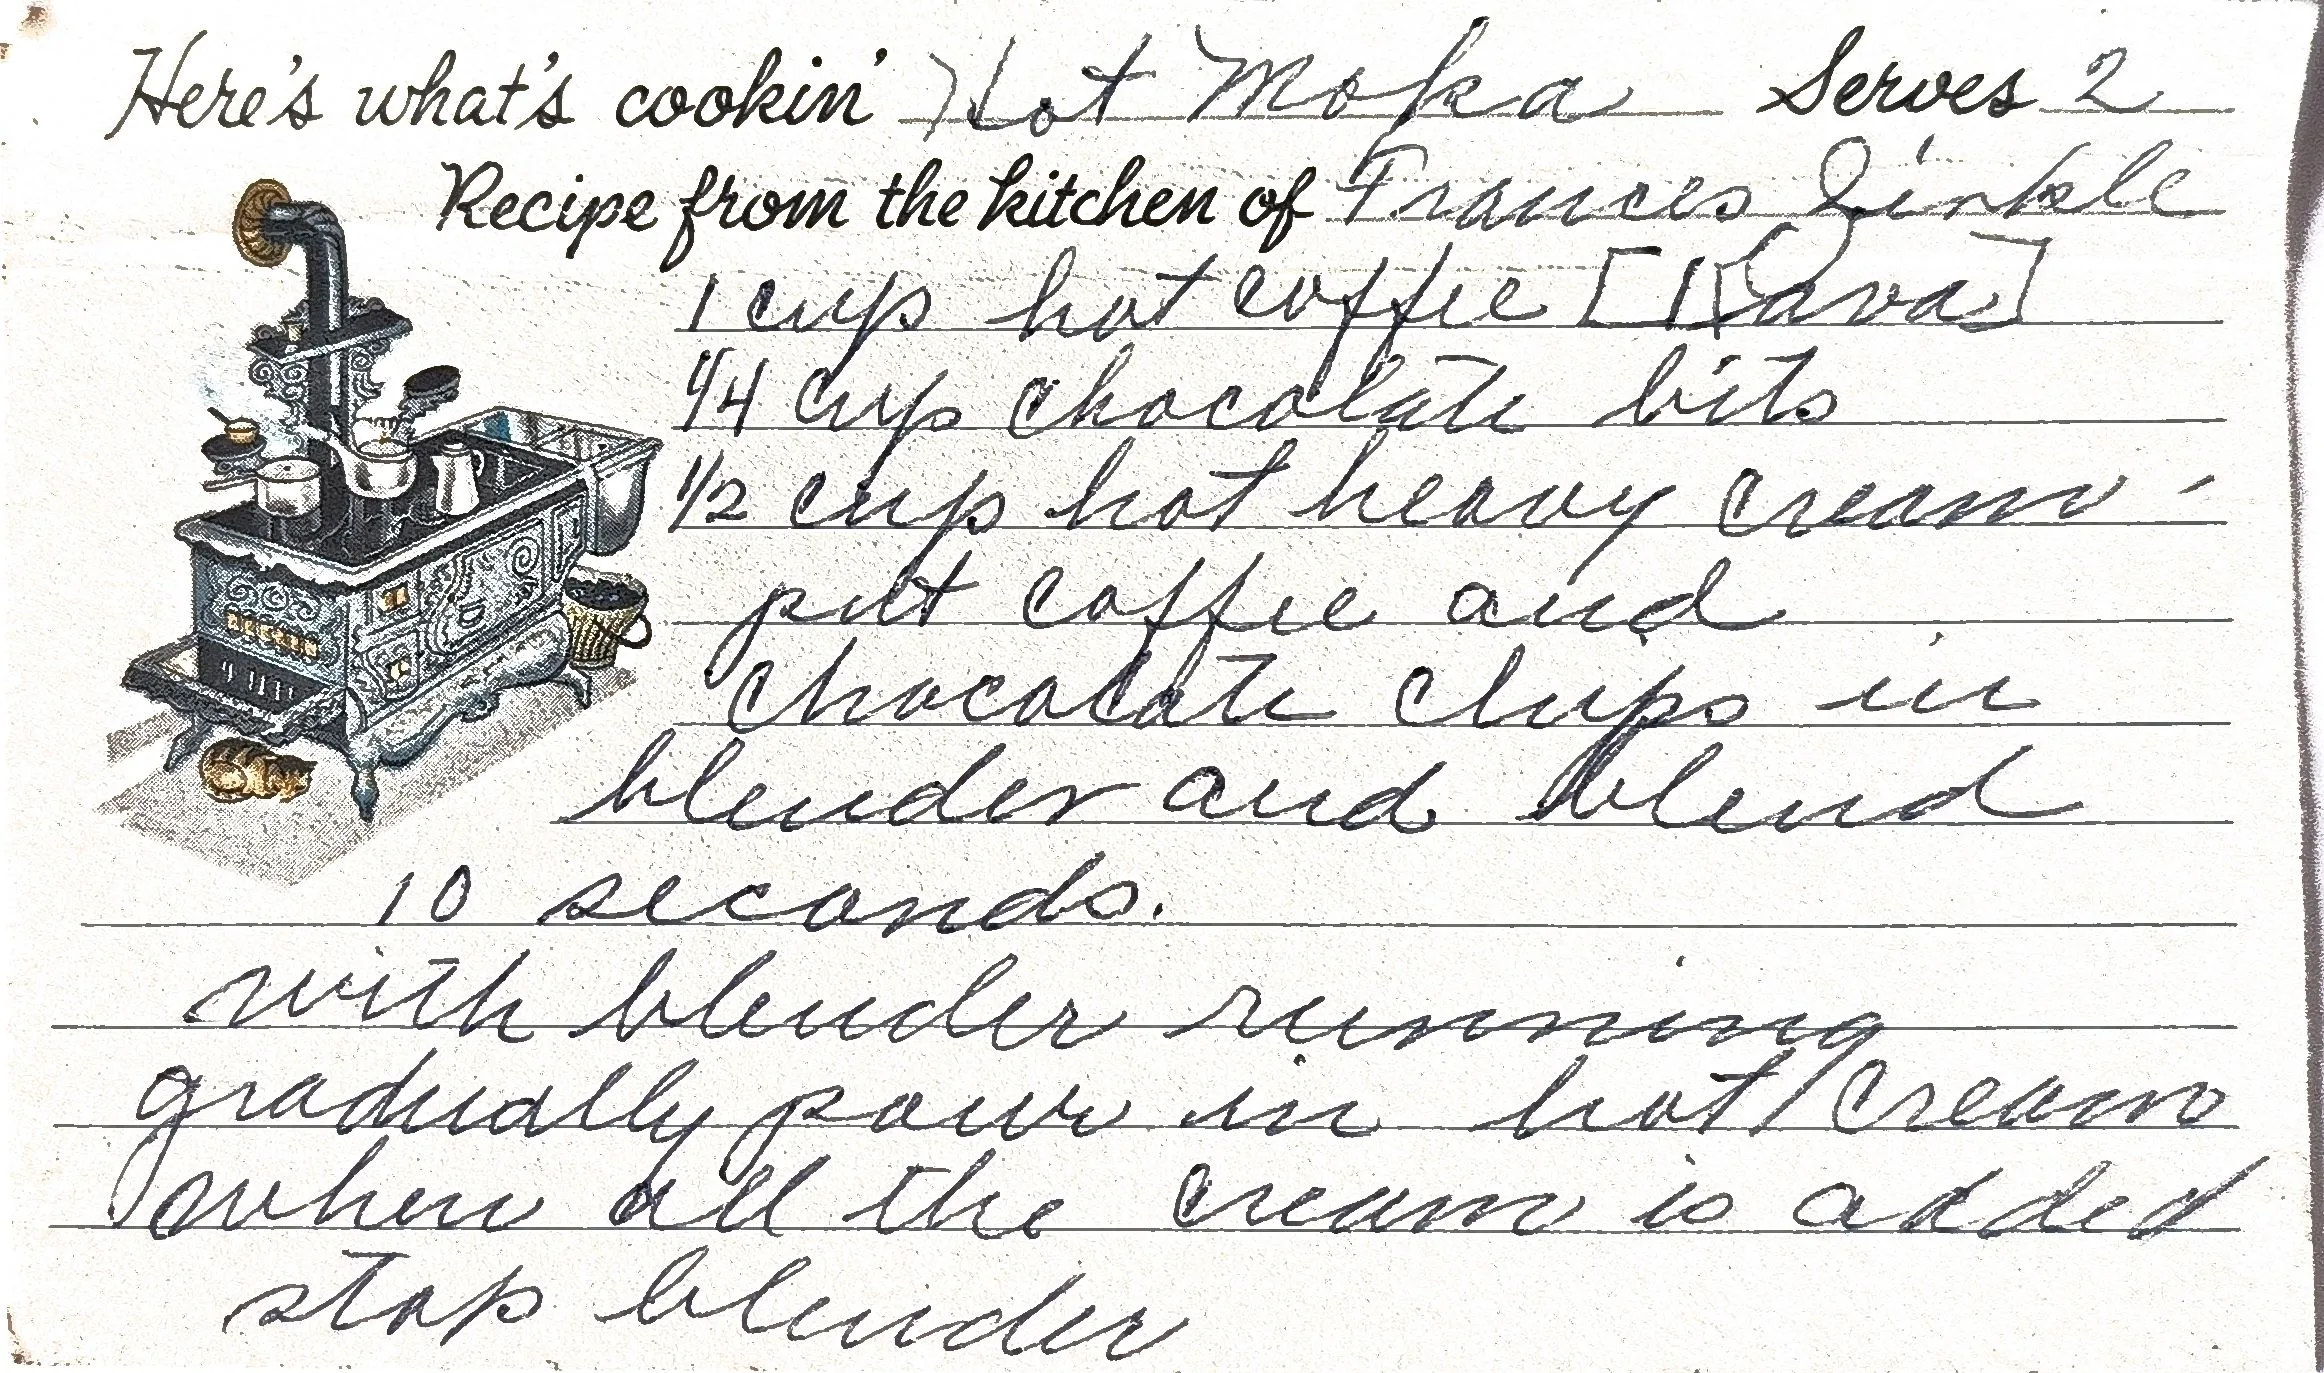 Here's what's cookin' Hot Moka Serves 2
Recipe from the kitchen of Frances
1 cup hot coffee [Kava]
1/4 cup chocolate bits
1/2 cup hot heavy cream -
put coffee and
chocolate chips in
blender and blend
10 seconds.
with blender running
gradually pour in hot cream
when all the cream is added
stop blender